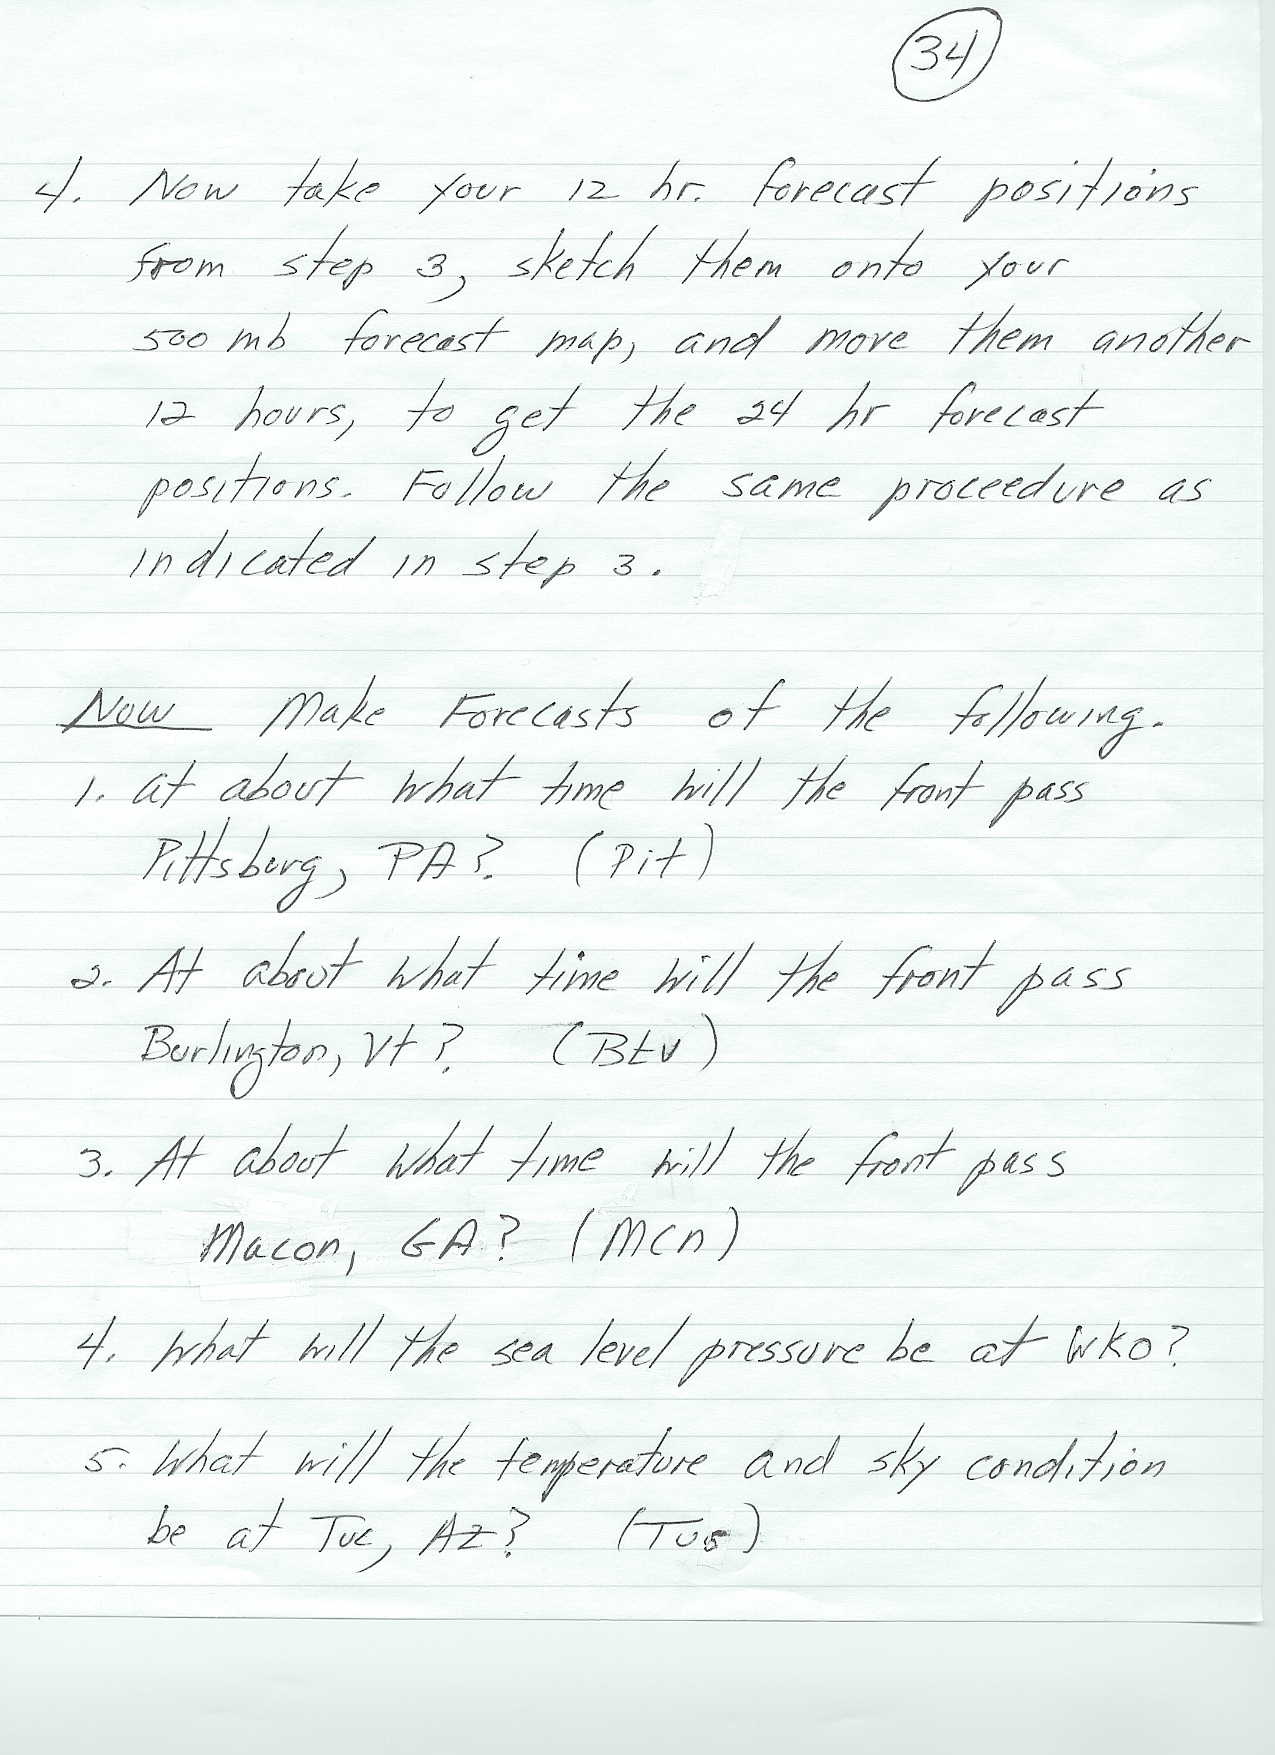 34
4. Now take your 12 hr. forecast positions
from step 3, sketch them onto your
500 mb forecast map, and move them another
12 hours, to get the 24 hr forecast
positions. Follow the same proceedure as
indicated in step 3.
Now Make Forecasts of the following.
1. at about what time will the front pass
Pittsburg, PA? (Pit)
2. At about what time will the front pass
Burlington, Vt? (Btv)
3. At about what time will the front pass
Macon, GA? (Mcn)
4. What will the sea level pressure be at WKO?
5. What will the temperature and sky condition
be at Tuc, AZ? (Tus)